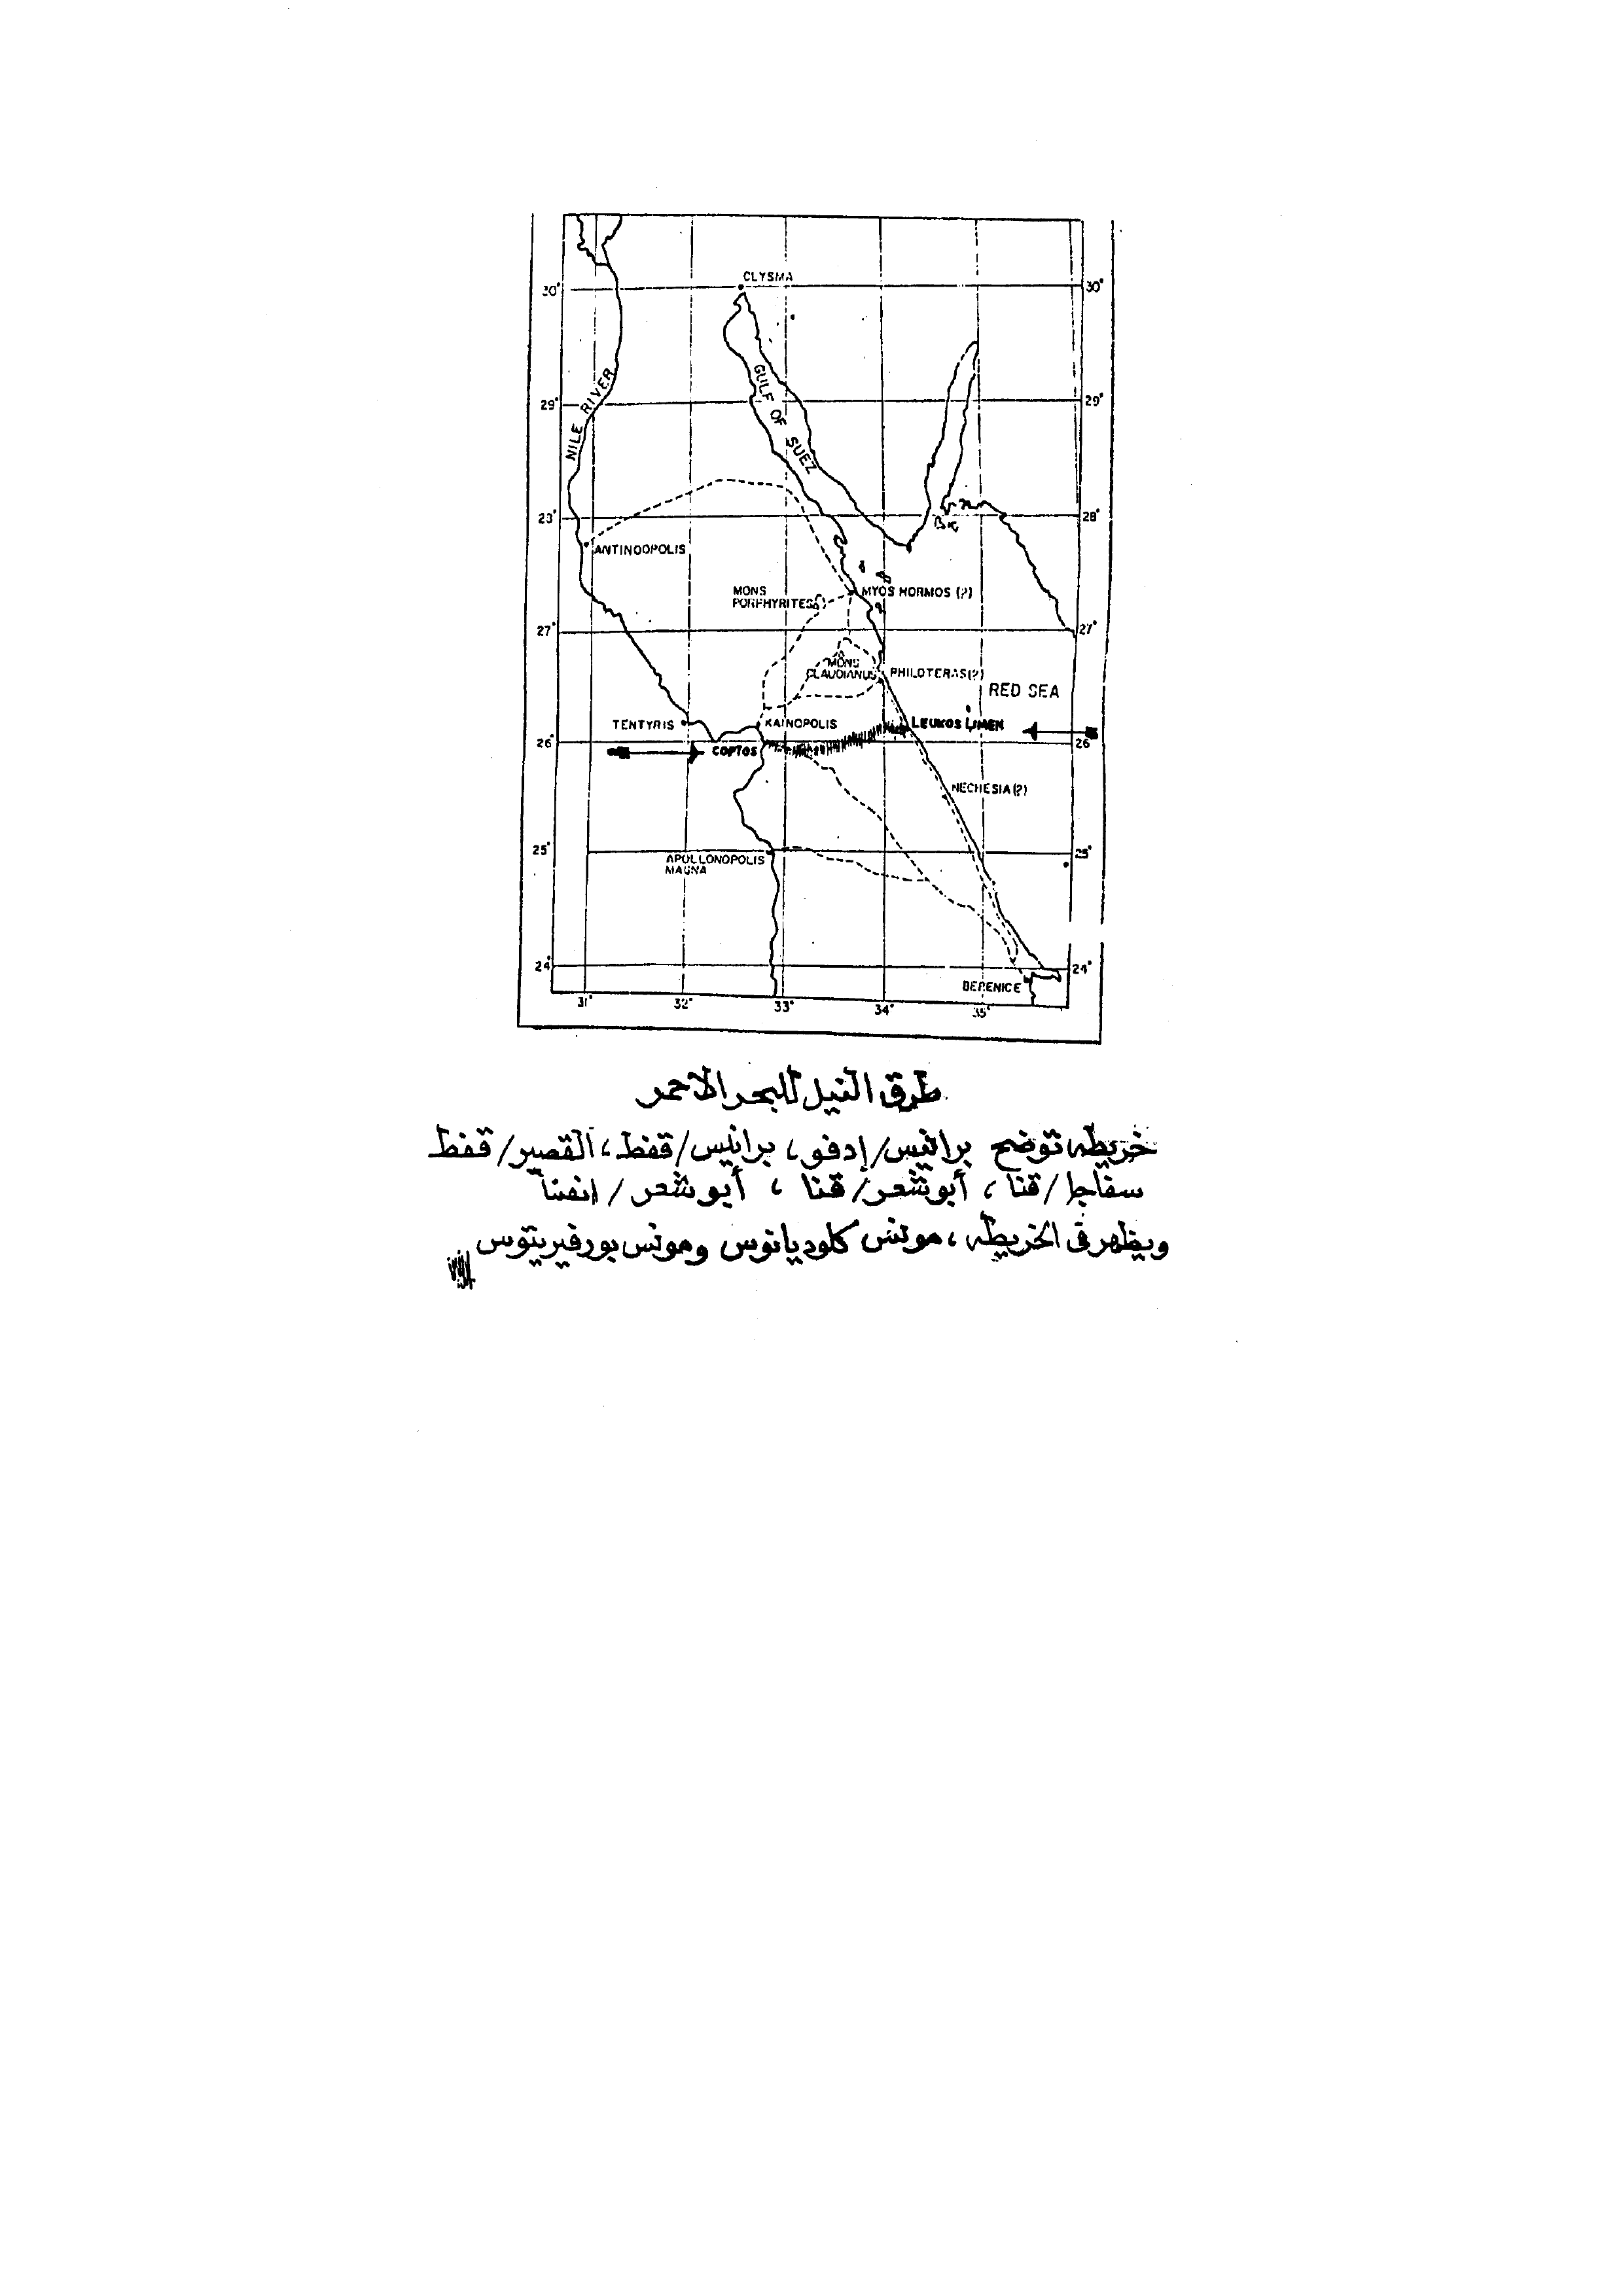 CLYSMA
30°
30°
GULF OF SUEZ
NILE RIVER
29°
29°
23°
28°
ANTINOOPOLIS
MONS
PORPHYRITES
MYOS HORMOS (?)
27°
27°
MONS
CLAUDIANUS
PHILOTERAS (?)
RED SEA
TENTYRIS
KAINOPOLIS
LEUKOS LIMEN
26°
26°
COPTOS
NECHESIA (?)
25°
25°
APOLLONOPOLIS
MAGNA
24°
24°
BERENICE
31°
32°
33°
34°
35°
طرق النيل للبحر الاحمر
خريطه توضح برانيس/إدفو، برانيس/قفط، القصير/قفط
سفاجا/قنا، أبو شعر/قنا، أبو شعر/انفنا
ويظهر فى الخريطه، مونس كلوديانوس ومونس بورفيريتوس